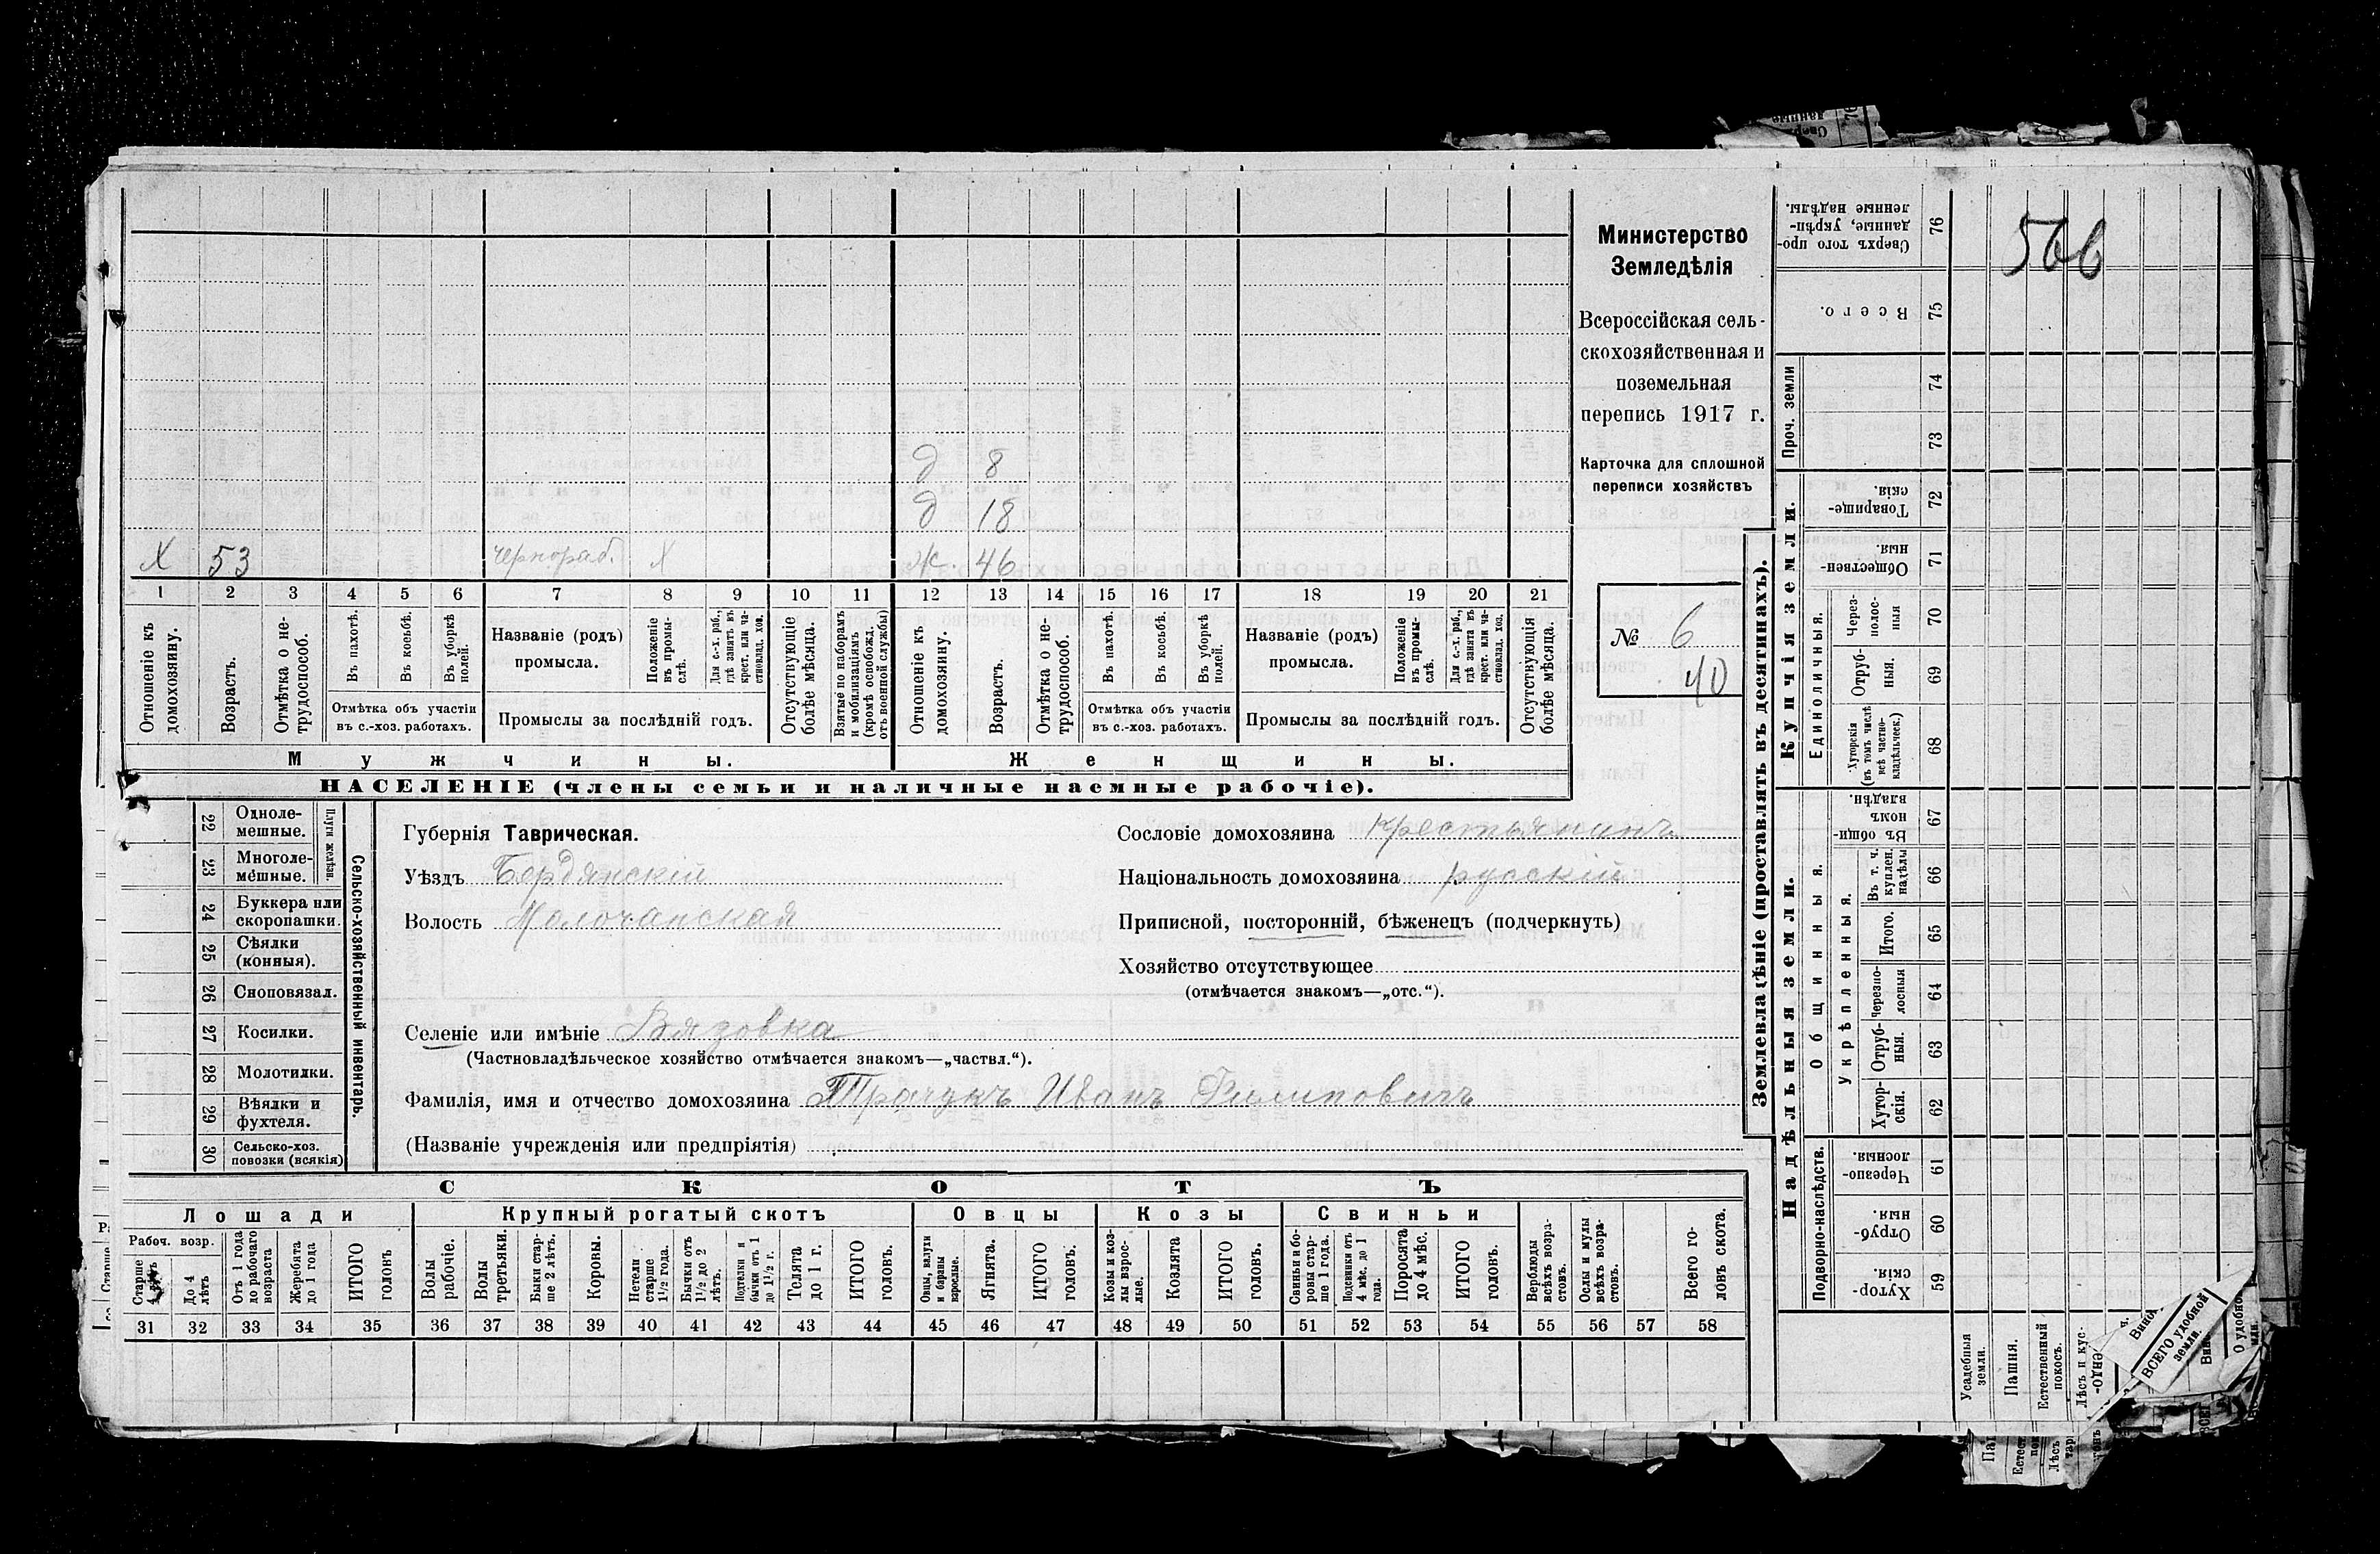 Министерство
Земледѣлія
Всероссійская сель-
скохозяйственная и
поземельная
перепись 1917 г.
Карточка для сплошной
переписи хозяйствъ
№ 6
40
566
д 8
д 18
Х 53 чернораб. Х ж. 46
1 2 3 4 5 6 7 8 9 10 11 12 13 14 15 16 17 18 19 20 21
Отношеніе къ домохозяину.
Возрастъ.
Отмѣтка о не-трудоспособ.
Въ пахотѣ.
Въ косьбѣ.
Въ уборкѣ полей.
Отмѣтка объ участіи
въ с.-хоз. работахъ.
Названіе (родъ)
промысла.
Положеніе въ промы-слѣ.
Для с.-х. раб., гдѣ занятъ въ крест. или ча-стновлад. хоз.
Промыслы за послѣдній годъ.
Отсутствующіе болѣе мѣсяца.
Взятые по наборамъ и мобилизаціямъ (кромѣ освобожд. отъ военной службы)
Отношеніе къ домохозяину.
Возрастъ.
Отмѣтка о не-трудоспособ.
Въ пахотѣ.
Въ косьбѣ.
Въ уборкѣ полей.
Отмѣтка объ участіи
въ с.-хоз. работахъ.
Названіе (родъ)
промысла.
Положеніе въ промы-слѣ.
Для с.-х. раб., гдѣ занята въ крест. или ча-стновлад. хоз.
Промыслы за послѣдній годъ.
Отсутствующія болѣе мѣсяца.
Мужчины.
Женщины.
НАСЕЛЕНІЕ (члены семьи и наличные наемные рабочіе).
22 Однолe-мешные.
23 Многоле-мешные.
Плуги желѣзн.
24 Буккера или скоропашки.
25 Сѣялки (конныя).
26 Сноповязал.
27 Косилки.
28 Молотилки.
29 Вѣялки и фухтеля.
30 Сельско-хоз. повозки (всякія)
Сельско-хозяйственный инвентарь.
Губернія Таврическая.
Уѣздъ Бердянскій
Волость Молочанская
Сословіе домохозяина Крестьянинъ
Національность домохозяина русскій
Приписной, посторонній, бѣженецъ (подчеркнуть)
Хозяйство отсутствующее
(отмѣчается знакомъ—„отс.“).
Селеніе или имѣніе Вязовка
(Частновладѣльческое хозяйство отмѣчается знакомъ—„частвл.“).
Фамилія, имя и отчество домохозяина Трачукъ Иванъ Филиповичъ
(Названіе учрежденія или предпріятія)
СКОТЪ
Лошади
Крупный рогатый скотъ
Овцы
Козы
Свиньи
Рабоч. возр.
Старше 4 лѣтъ
До 4 лѣтъ
Отъ 1 года до рабочаго возраста
Жеребята до 1 года
ИТОГО головъ
Волы рабочіе.
Волы третьяки.
Быки стар-ше 2 лѣтъ.
Коровы.
Нетели старше 1 1/2 года.
Бычки отъ 1 1/2 до 2 лѣтъ.
Подтелки и бычки отъ 1 до 1 1/2 г.
Телята до 1 г.
ИТОГО головъ.
Овцы, валухи и бараны взрослые.
Ягнята.
ИТОГО головъ.
Козы и коз-лы взрос-лые.
Козлята
ИТОГО головъ.
Свиньи и бо-ровы стар-ше 1 года.
Подсвинки отъ 4 мѣс. до 1 года.
Поросята до 4 мѣс.
ИТОГО головъ.
Верблюды всѣхъ возра-стовъ.
Ослы и мулы всѣхъ возра-стовъ.
Всего го-ловъ скота.
31 32 33 34 35 36 37 38 39 40 41 42 43 44 45 46 47 48 49 50 51 52 53 54 55 56 57 58
Землевладѣніе (проставлять въ десятинахъ).
Купчія земли.
Надѣльныя земли.
76 Сверхъ того про-данные, укрѣп-ленные надѣлы.
75 Всего.
Проч. земли
74
73
72 Товарище-скія.
71 Обществен-ныя
Единоличныя.
70 Через-полос-ныя
69 Отруб-ныя.
68 Хуторскія (въ томъ числѣ всѣ частно-владѣльческ.)
Общинныя.
67 Въ общи-номъ владѣн.
Укрѣпленныя.
66 Въ т. ч. куплен. надѣлы
65 Итого.
64 Черезпо-лосныя
63 Отруб-ныя.
62 Хутор-скія.
Подворно-наслѣдств.
61 Черезпо-лосныя.
60 Отруб-ныя.
59 Хутор-скія.
Усадебныя земли.
Пашня.
Естественный покосъ.
Лѣсъ и кус-
ВСЕГО удобной земли.